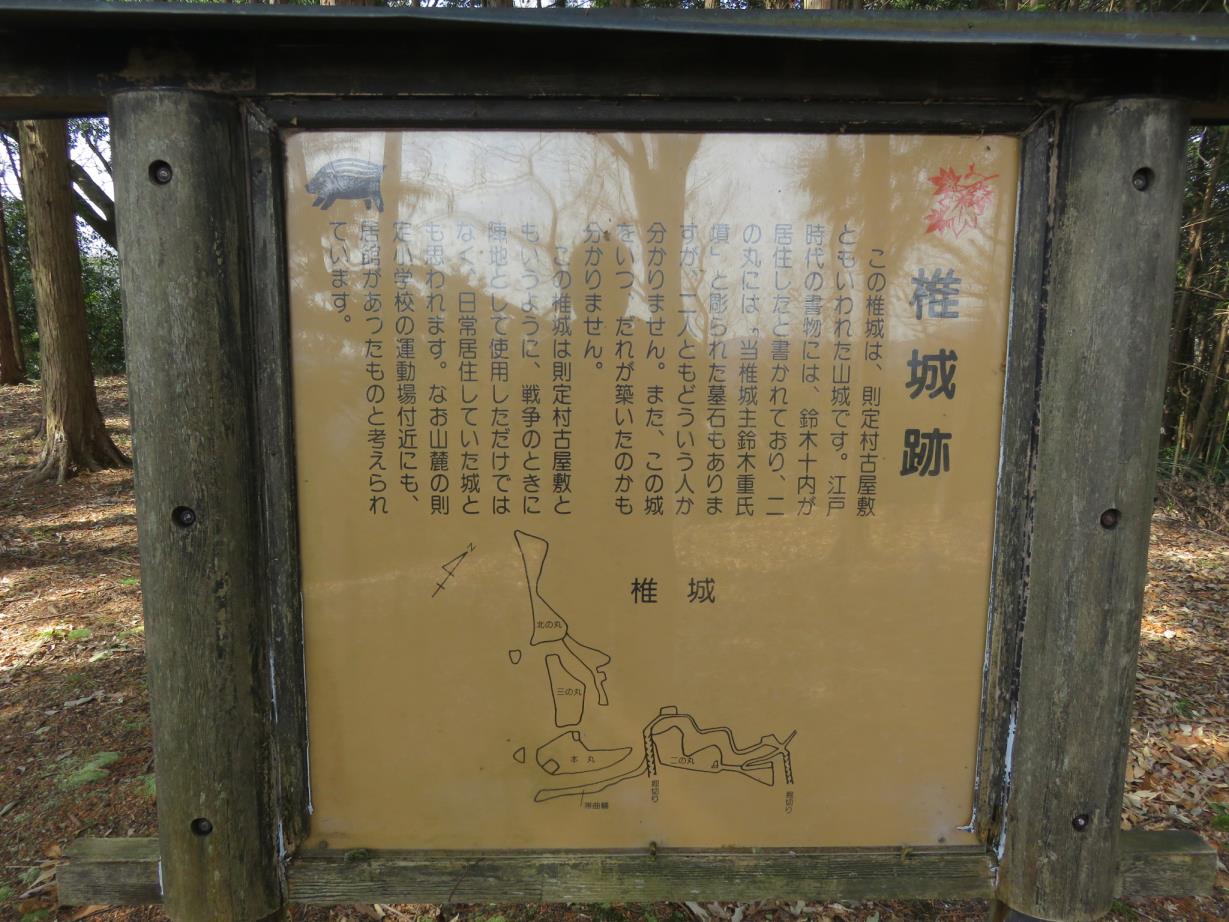 椎城跡
この椎城は、則定村古屋敷
ともいわれた山城です。江戸
時代の書物には、鈴木十内が
居住したと書かれており、二
の丸には〝当椎城主鈴木重氏
墳〟と彫られた墓石もありま
すが、二人ともどういう人か
分かりません。また、この城
をいつ、だれが築いたのかも
分かりません。
この椎城は則定村古屋敷と
もいうように、戦争のときに
陣地として使用しただけでは
なく、日常居住していた城と
も思われます。なお山麓の則
定小学校の運動場付近にも、
居館があったものと考えられ
ています。
椎城
N
北の丸
三の丸
本丸
二の丸
堀切り
堀切り
帯曲輪